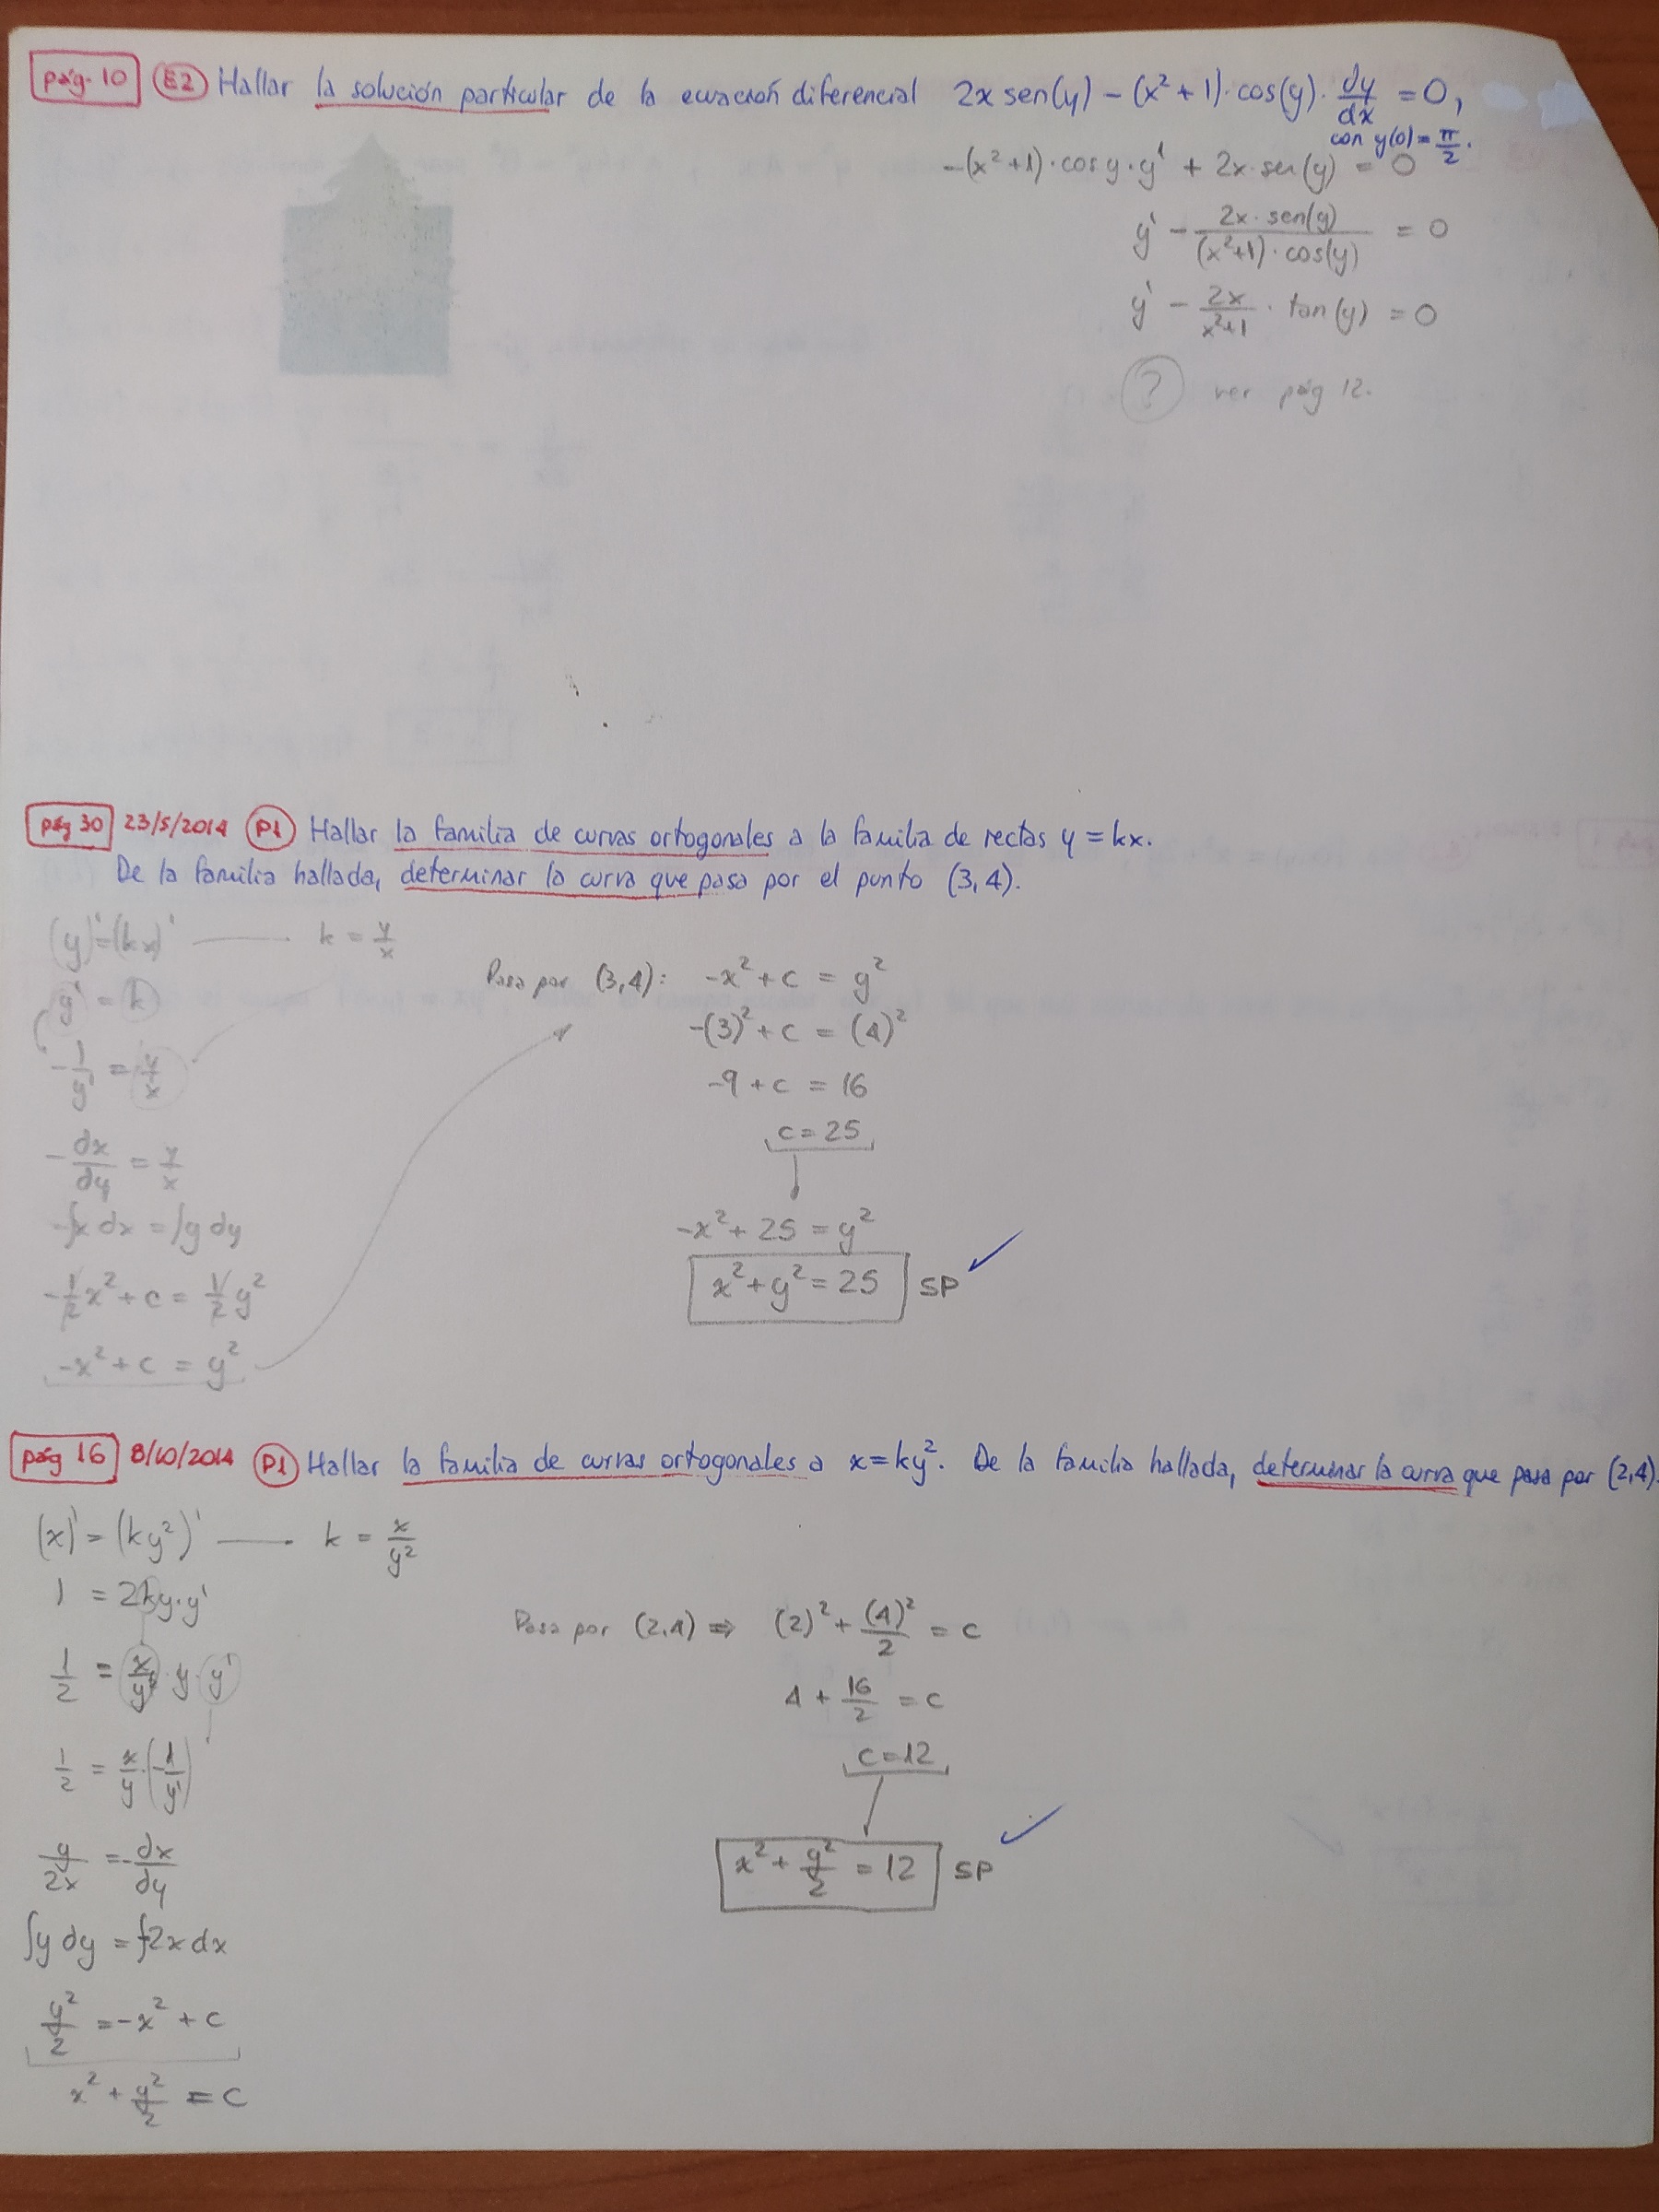 pág. 10 E2 Hallar la solución particular de la ecuación diferencial 2x sen(y) - (x²+1)·cos(y)·dy/dx = 0,
con y(0) = π/2.
-(x²+1)·cos y·y' + 2x·sen(y) = 0
y' - 2x·sen(y)/((x²+1)·cos(y)) = 0
y' - 2x/(x²+1) · tan(y) = 0
? ver pág 12.
pág 30 23/5/2014 P1 Hallar la familia de curvas ortogonales a la familia de rectas y = kx.
De la familia hallada, determinar la curva que pasa por el punto (3,4).
(y)' = (kx)' — k = y/x
y' = k
-1/y' = y/x
-dx/dy = y/x
-∫x dx = ∫y dy
-1/2 x² + c = 1/2 y²
-x² + c = y²
Pasa por (3,4): -x² + c = y²
-(3)² + c = (4)²
-9 + c = 16
c = 25
-x² + 25 = y²
x² + y² = 25 SP
pág 16 8/10/2014 P1 Hallar la familia de curvas ortogonales a x = ky². De la familia hallada, determinar la curva que pasa por (2,4).
(x)' = (ky²)' — k = x/y²
1 = 2ky·y'
1/2 = x/y² · y · y'
1/2 = x/y · (-1/y')
y/2x = -dx/dy
∫y dy = ∫-2x dx
y²/2 = -x² + c
x² + y²/2 = c
Pasa por (2,4) ⇒ (2)² + (4)²/2 = c
4 + 16/2 = c
c = 12
x² + y²/2 = 12 SP